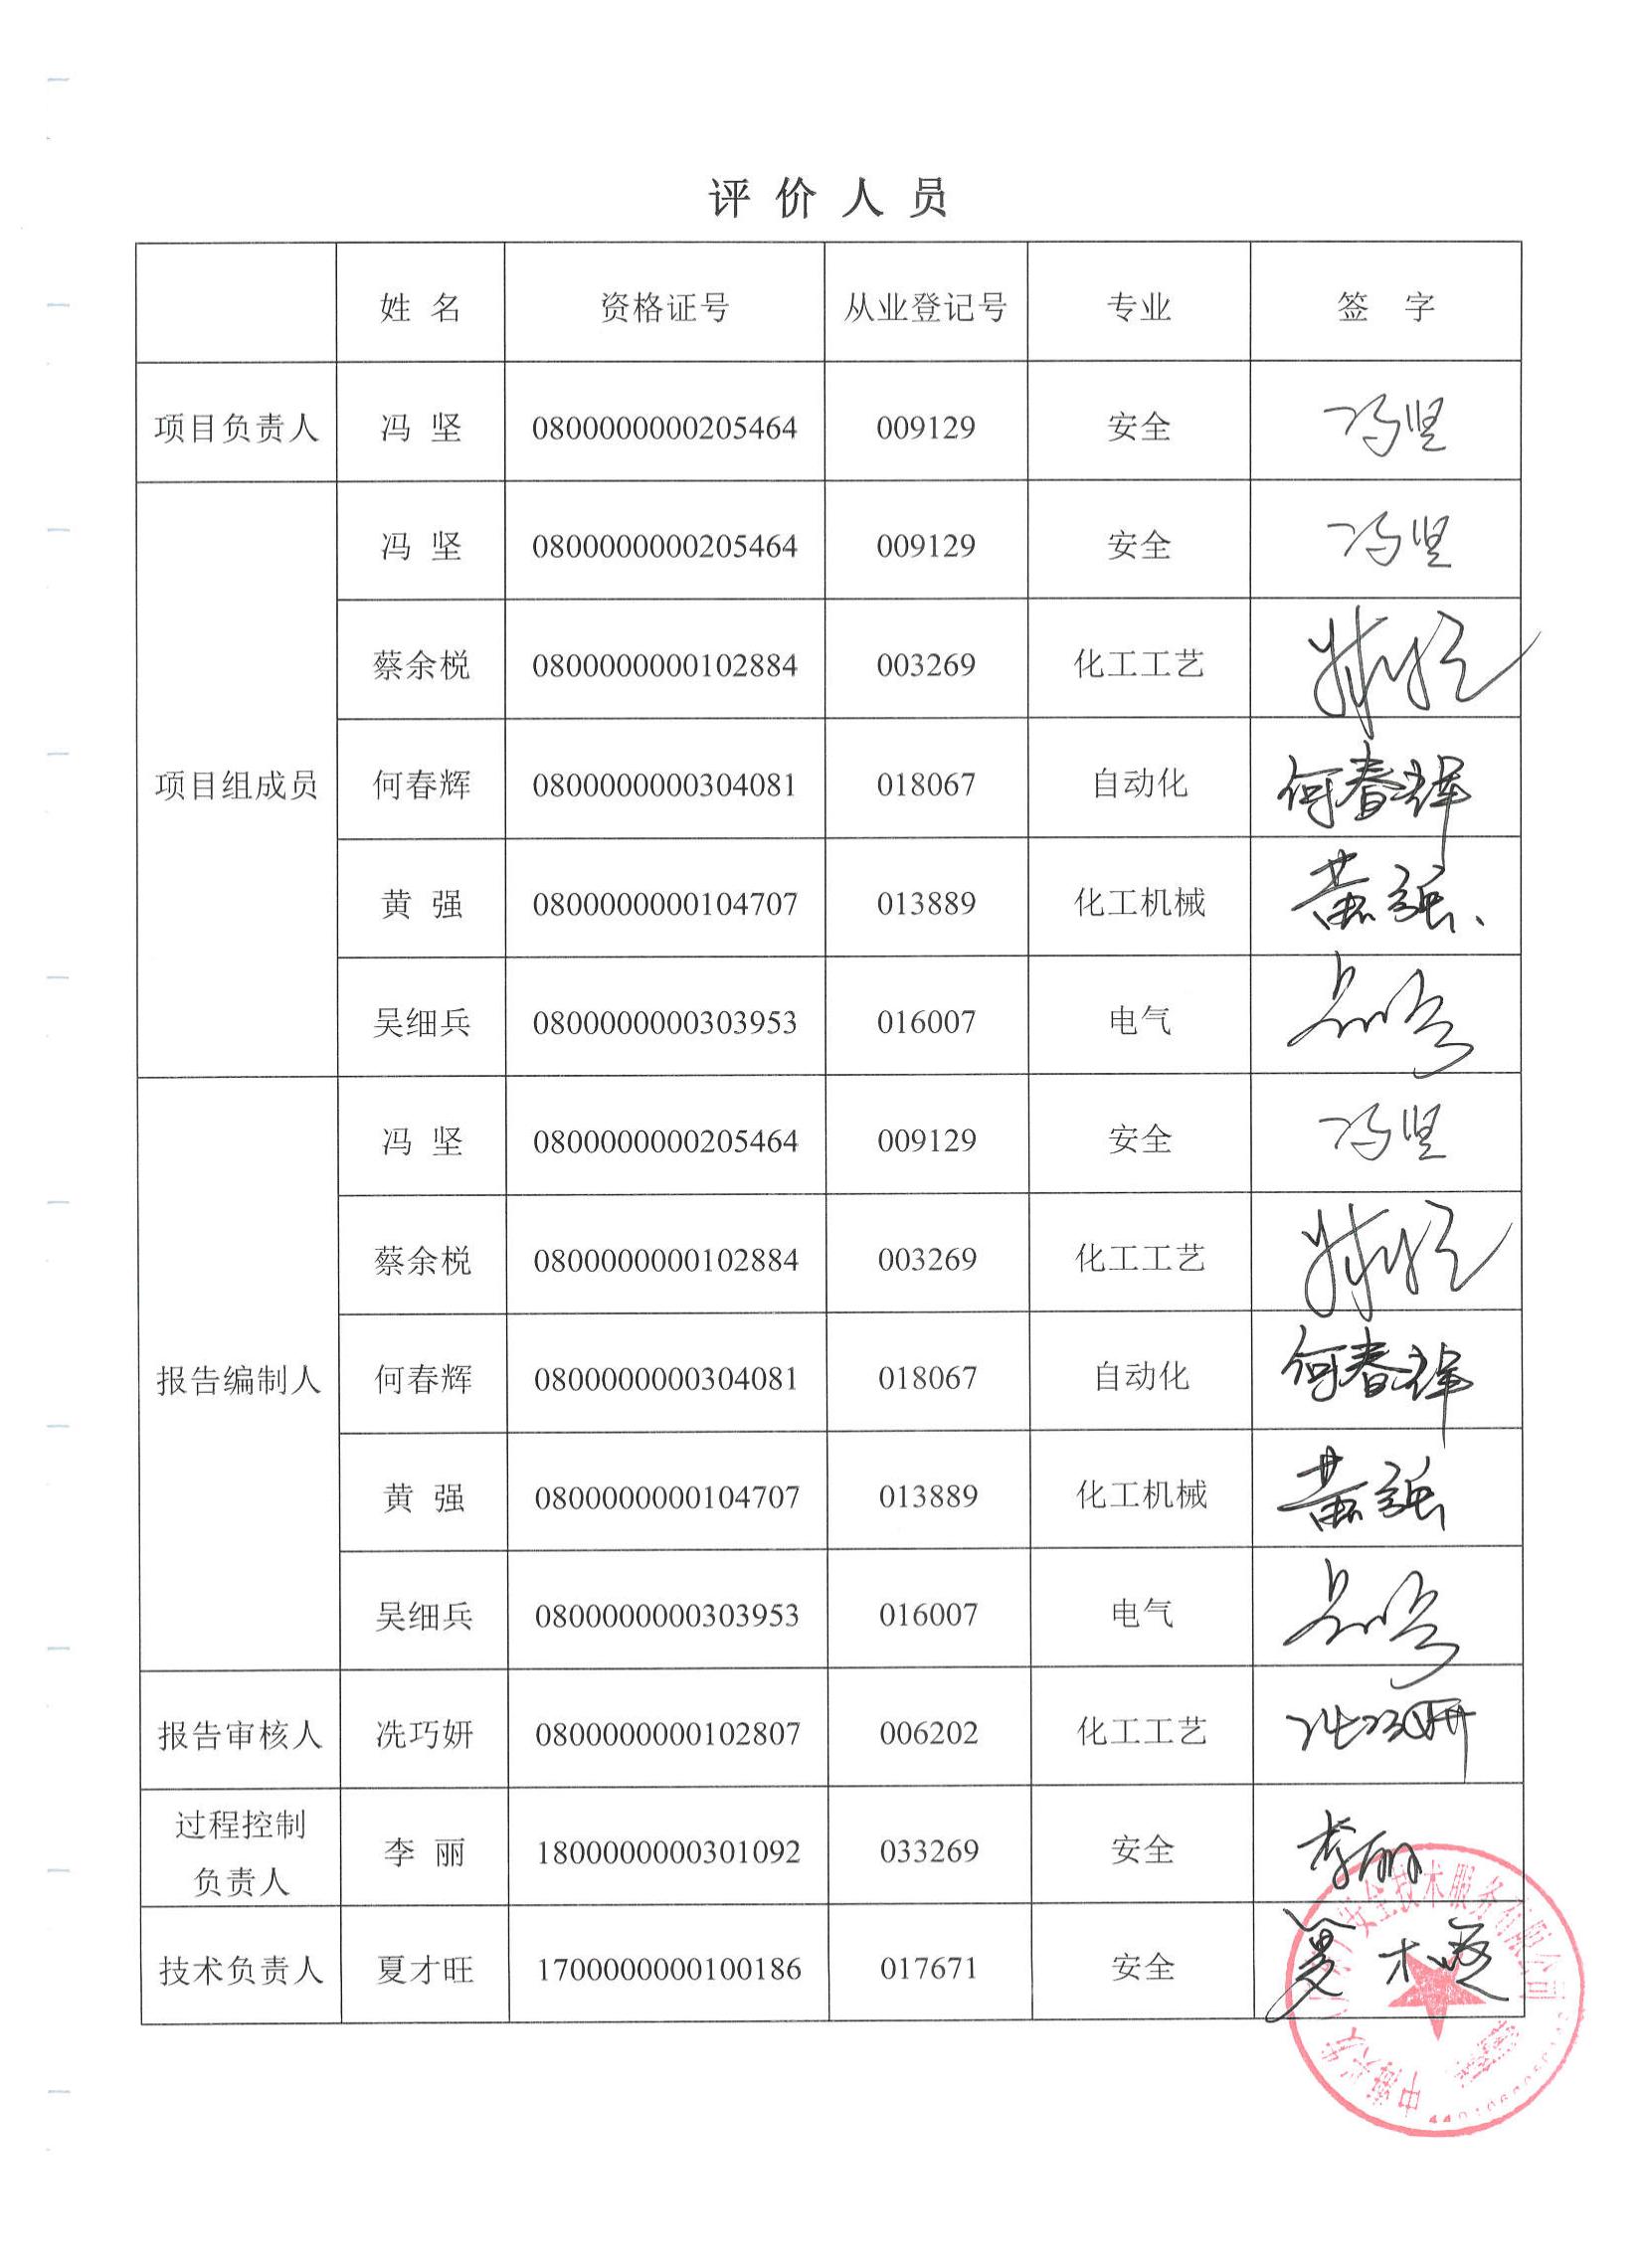 评价人员
姓 名 资格证号 从业登记号 专业 签 字
项目负责人 冯 坚 0800000000205464 009129 安全 冯坚
项目组成员 冯 坚 0800000000205464 009129 安全 冯坚
蔡余棁 0800000000102884 003269 化工工艺
何春辉 0800000000304081 018067 自动化 何春辉
黄 强 0800000000104707 013889 化工机械 黄强
吴细兵 0800000000303953 016007 电气
报告编制人 冯 坚 0800000000205464 009129 安全 冯坚
蔡余棁 0800000000102884 003269 化工工艺
何春辉 0800000000304081 018067 自动化 何春辉
黄 强 0800000000104707 013889 化工机械 黄强
吴细兵 0800000000303953 016007 电气
报告审核人 冼巧妍 0800000000102807 006202 化工工艺 冼巧妍
过程控制
负责人 李 丽 1800000000301092 033269 安全 李丽
技术负责人 夏才旺 1700000000100186 017671 安全 夏才旺
安全技术服务有限公司